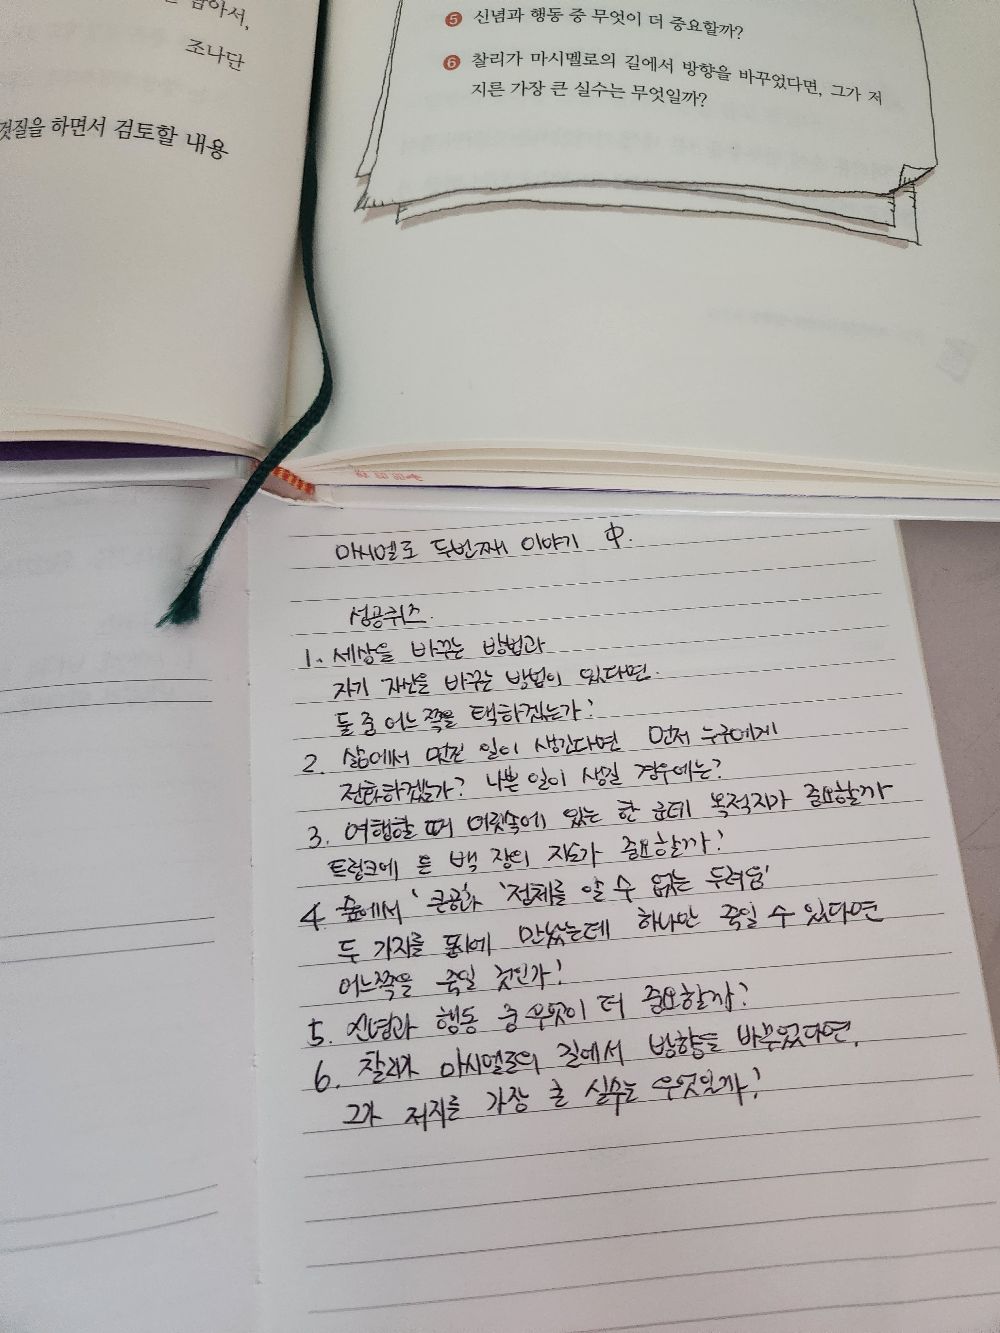 담아서,
조나단
것질을 하면서 검토할 내용
5 신념과 행동 중 무엇이 더 중요할까?
6 찰리가 마시멜로의 길에서 방향을 바꾸었다면, 그가 저
지른 가장 큰 실수는 무엇일까?
마시멜로 두번째 이야기 中.
성공퀴즈.
1. 세상을 바꾸는 방법과
자기 자신을 바꾸는 방법이 있다면.
둘 중 어느쪽을 택하겠는가?
2. 삶에서 멋진 일이 생긴다면 먼저 누구에게
전화하겠는가? 나쁜 일이 생길 경우에는?
3. 여행할 때 머릿속에 있는 한 군데 목적지가 중요할까
트렁크에 든 백 장의 지도가 중요할까?
4. 숲에서 '큰곰'과 '정체를 알 수 없는 두려움'
두 가지를 동시에 만났는데 하나만 죽일 수 있다면
어느쪽을 죽일 것인가?
5. 신념과 행동 중 무엇이 더 중요할까?
6. 찰리가 마시멜로의 길에서 방향을 바꾸었다면,
그가 저지른 가장 큰 실수는 무엇일까?